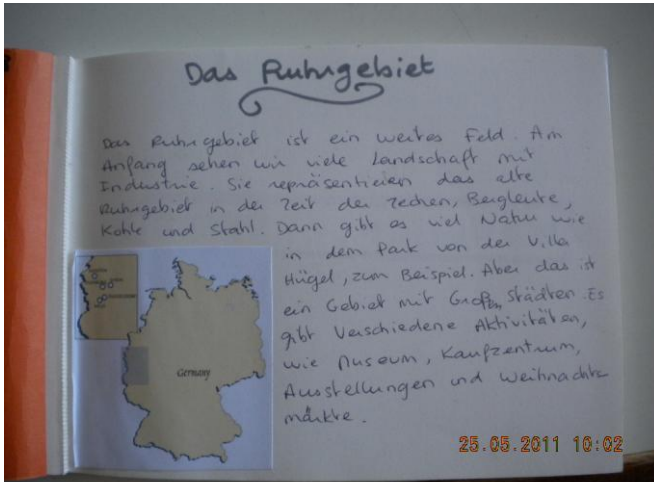 Das Ruhrgebiet
Das Ruhrgebiet ist ein weites Feld. Am
Anfang sehen wir viele Landschaft mit
Industrie. Sie repräsentieren das alte
Ruhrgebiet in der Zeit der Zechen, Bergleute,
Kohle und Stahl. Dann gibt es viel Natur wie
in dem Park von der Villa
Hügel, zum Beispiel. Aber das ist
ein Gebiet mit Großen Städten. Es
gibt Verschiedene Aktivitäten,
wie Museum, Kaufzentrum,
Ausstellungen und Weihnachts
märkte.
Germany
25.05.2011 10:02